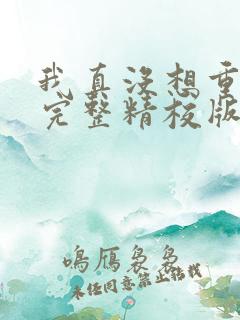 我真没想重
完整精校版
鸣鴈袅袅
未经同意禁止转载